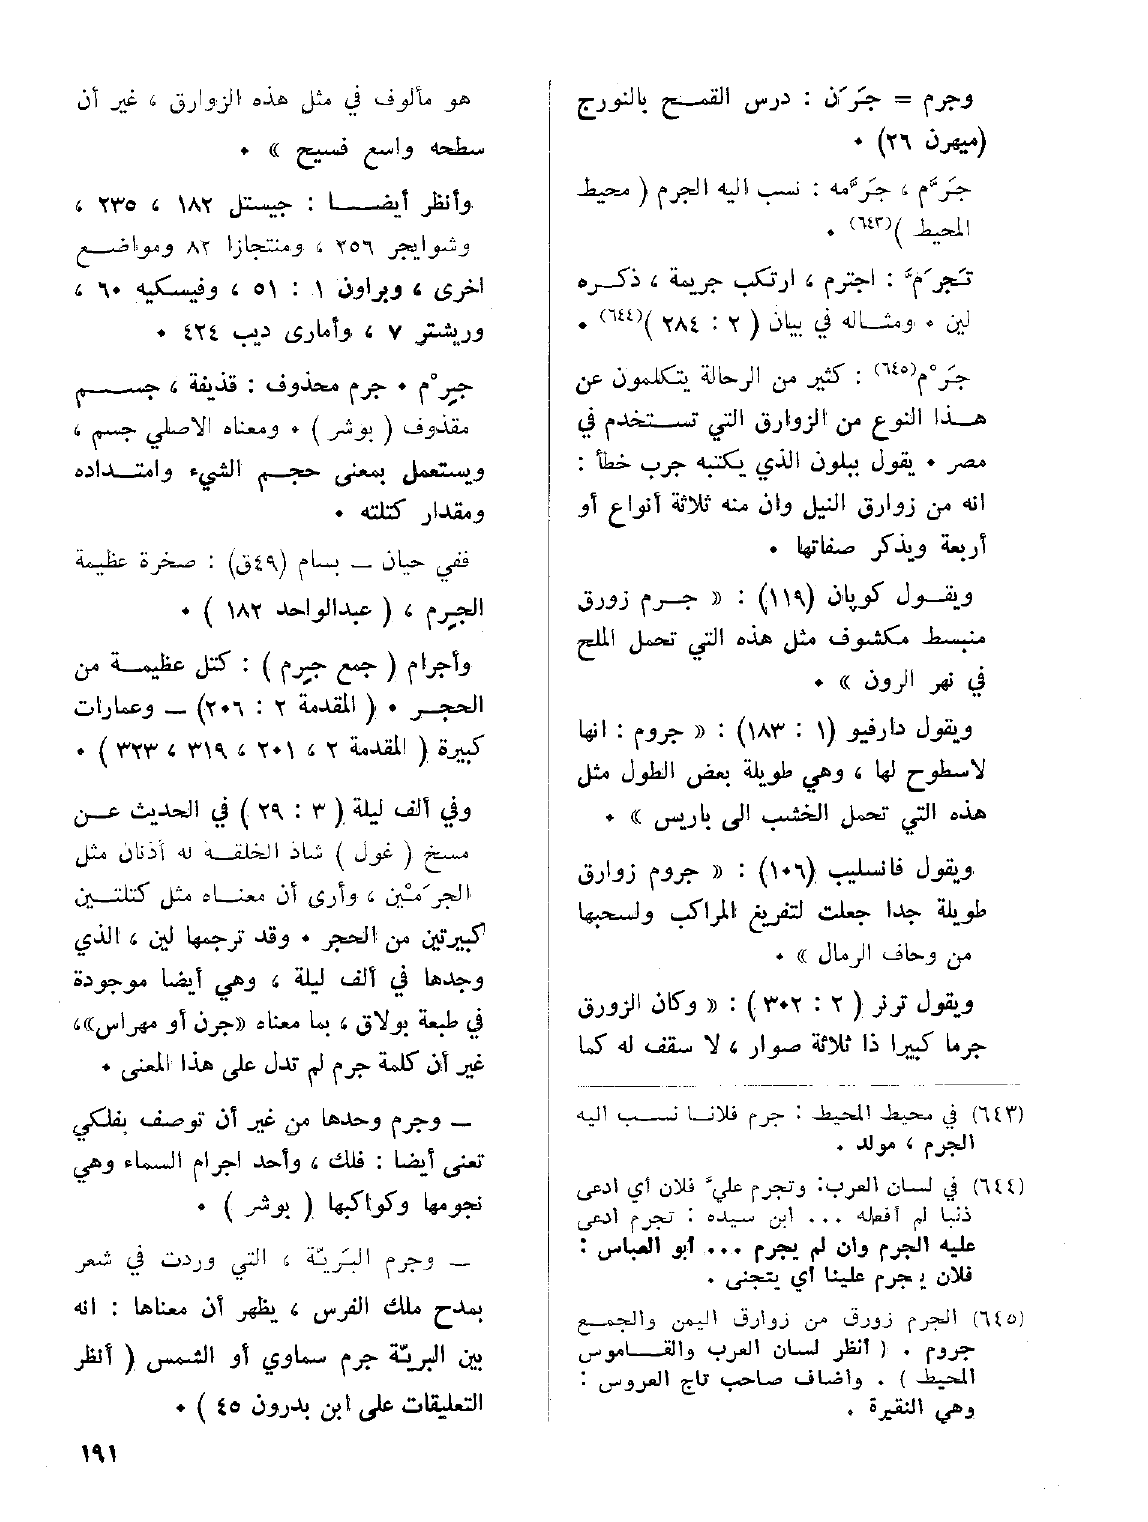 وجرم = جَرَن : درس القمح بالنورج
(ميهرن ٢٦) ٠
جَرَّم ، جَرَّمه : نسب اليه الجرم ( محيط
المحيط )(٦٤٣) ٠
تَجَرَّم : اجترم ، ارتكب جريمة ، ذكره
لين ٠ ومثاله في بيان ( ٢ : ٢٨٤ )(٦٤٤) ٠
جَرْم(٦٤٥) : كثير من الرحالة يتكلمون عن
هذا النوع من الزوارق التي تستخدم في
مصر ٠ يقول ببلون الذي يكتبه جرب خطأ :
انه من زوارق النيل وان منه ثلاثة أنواع أو
أربعة ويذكر صفاتها ٠
ويقول كوپان (١١٩) : « جرم زورق
منبسط مكشوف مثل هذه التي تحمل الملح
في نهر الرون » ٠
ويقول دارفيو (١ : ١٨٣) : « جروم : انها
لاسطوح لها ، وهي طويلة بعض الطول مثل
هذه التي تحمل الخشب الى باريس » ٠
ويقول فانسليب (١٠٦) : « جروم زوارق
طويلة جدا جعلت لتفريغ المراكب ولسحبها
من وحاف الرمال » ٠
ويقول ترنر ( ٢ : ٣٠٢ ) : « وكان الزورق
جرما كبيرا ذا ثلاثة صوار ، لا سقف له كما
(٦٤٣) في محيط المحيط : جرم فلانا نسب اليه
الجرم ، مولد ٠
(٦٤٤) في لسان العرب: وتجرم عليّ فلان أي ادعى
ذنبا لم أفعله ... ابن سيده : تجرم ادعى
عليه الجرم وان لم يجرم ... أبو العباس :
فلان يجرم علينا أي يتجنى ٠
(٦٤٥) الجرم زورق من زوارق اليمن والجمع
جروم ٠ ( انظر لسان العرب والقاموس
المحيط ) ٠ وأضاف صاحب تاج العروس :
وهي النقيرة ٠
هو مألوف في مثل هذه الزوارق ، غير أن
سطحه واسع فسيح » ٠
وأنظر أيضا : جيستل ١٨٢ ، ٢٣٥ ،
وشوايجر ٢٥٦ ، ومنتجازا ٨٢ ومواضع
اخرى ، وبراون ١ : ٥١ ، وفيسكيه ٦٠ ،
وريشتر ٧ ، وأمارى ديب ٤٢٤ ٠
جِرْم ٠ جرم محذوف : قذيفة ، جسم
مقذوف ( بوشر ) ٠ ومعناه الاصلي جسم ،
ويستعمل بمعنى حجم الشيء وامتداده
ومقدار كتلته ٠
ففي حيان – بسام (٤٩ق) : صخرة عظيمة
الجِرم ، ( عبدالواحد ١٨٢ ) ٠
وأجرام ( جمع جِرم ) : كتل عظيمة من
الحجر ٠ ( المقدمة ٢ : ٢٠٦) – وعمارات
كبيرة ( المقدمة ٢ ، ٢٠١ ، ٣١٩ ، ٣٢٣ ) ٠
وفي ألف ليلة ( ٣ : ٢٩ ) في الحديث عن
مسخ ( غول ) شاذ الخلقة له أذنان مثل
الجرَمْين ، وأرى أن معناه مثل كتلتين
كبيرتين من الحجر ٠ وقد ترجمها لين ، الذي
وجدها في ألف ليلة ، وهي أيضا موجودة
في طبعة بولاق ، بما معناه «جرن أو مهراس»،
غير أن كلمة جرم لم تدل على هذا المعنى ٠
– وجرم وحدها من غير أن توصف بفلكي
تعنى أيضا : فلك ، وأحد اجرام السماء وهي
نجومها وكواكبها ( بوشر ) ٠
– وجرم البَريّة ، التي وردت في شعر
بمدح ملك الفرس ، يظهر أن معناها : انه
بين البريّة جرم سماوي أو الشمس ( أنظر
التعليقات على ابن بدرون ٤٥ ) ٠
١٩١